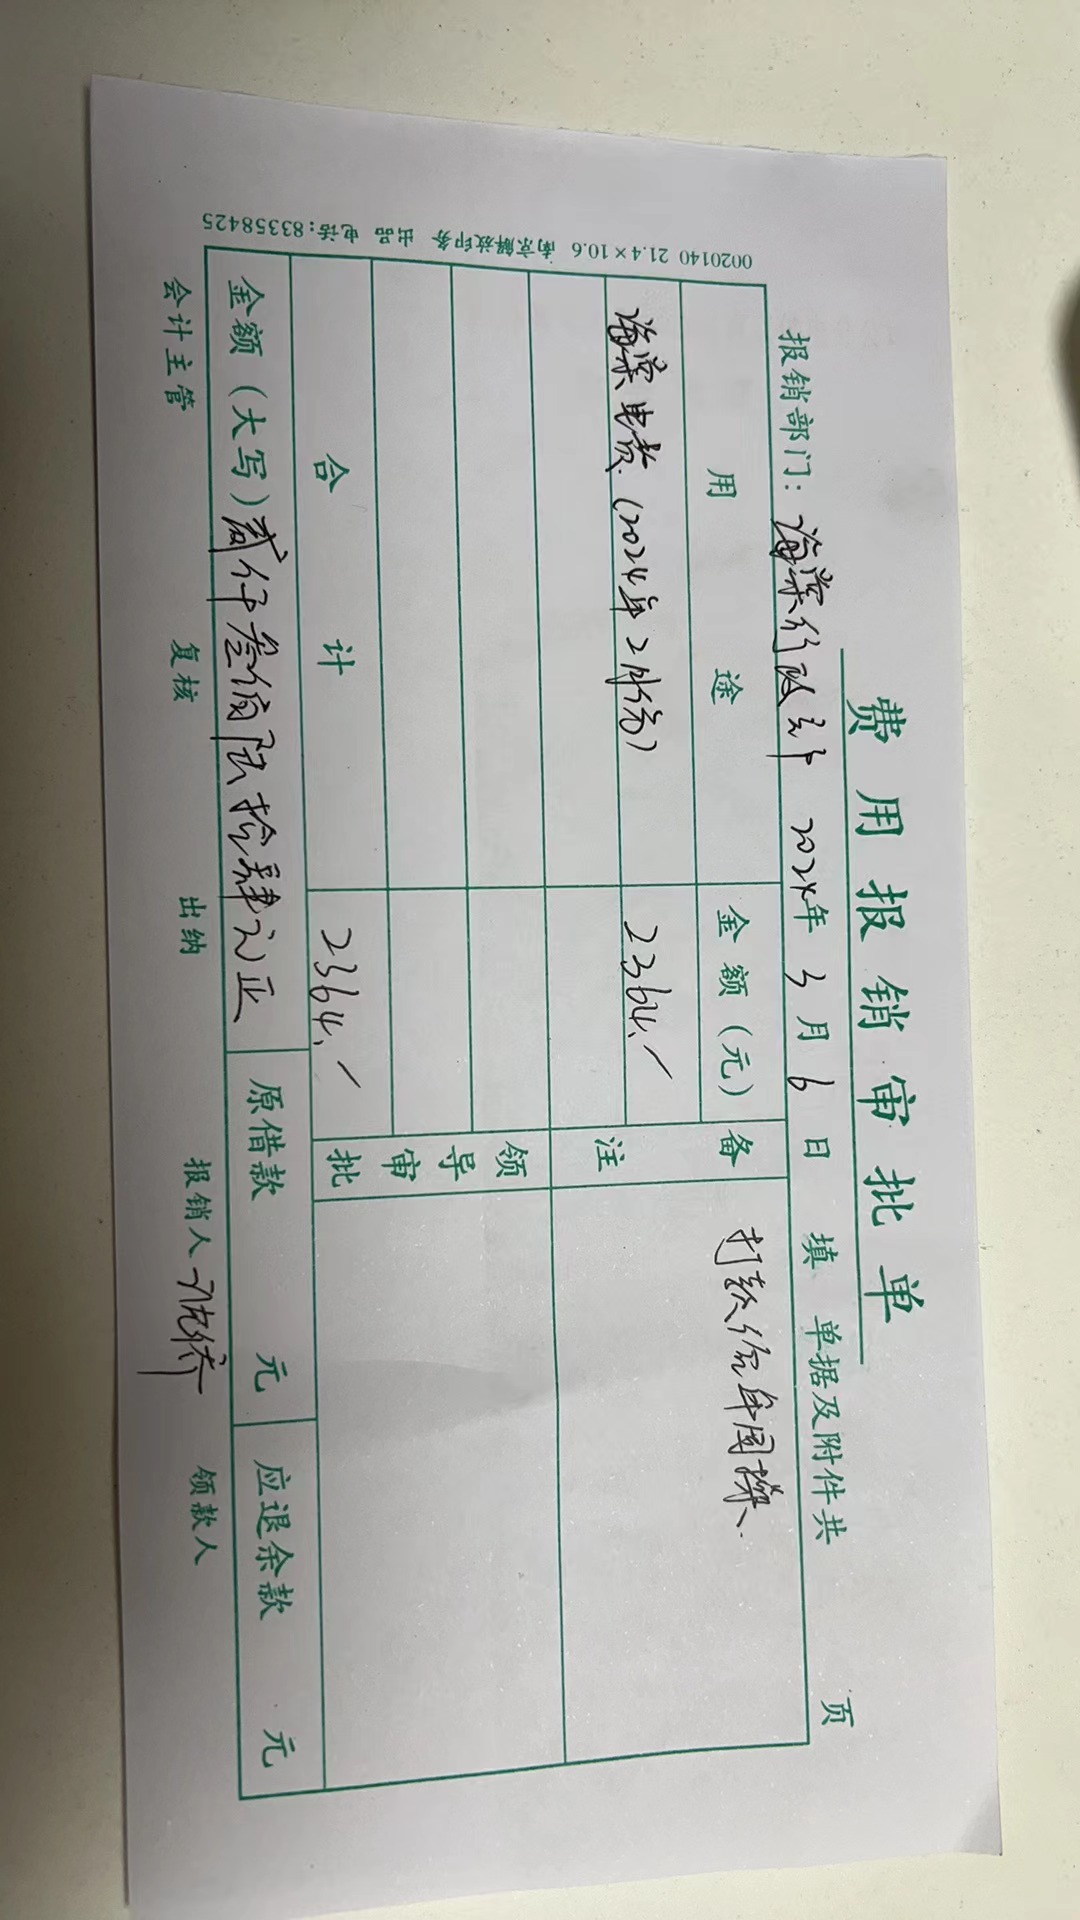 费用报销审批单
报销部门：海棠行政部 2024年3月6日填 单据及附件共 页
用途 金额（元） 备注 打款给单国梯.
海棠电费.（2024年2月份） 2364.
领导审批
合计 2364.
金额（大写）贰仟叁佰陆拾肆元正 原借款 元 应退余款 元
会计主管 复核 出纳 报销人 领款人
0020140 21.4×10.6 南京解放印务 出品 电话：83358425